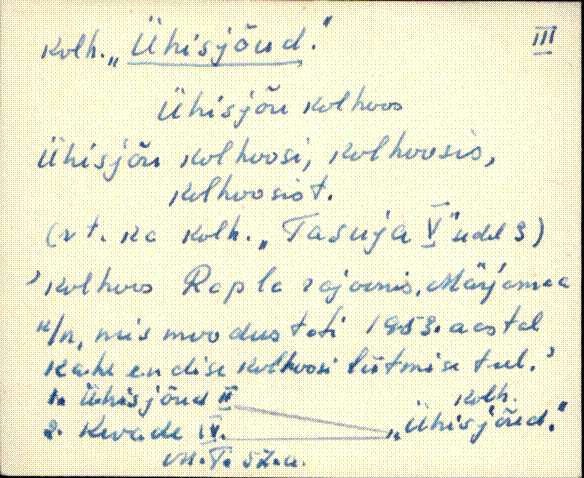 kolh. „Ühisjõud." III
Ühisjõu kolhoos
Ühisjõu kolhoosi, kolhoosis,
kolhoosist.
(vt. ka kolh. „Tasuja V" 3)
'kolhoos Rapla rajoonis, Märjamaa
k/n, mis moodustati 1953. aastal
kahe endise kolhoosi liitmise teel.'
1. Ühisjõud II kolh.
2. Kevade IV. „Ühisjõud."
M. T. 52.a.